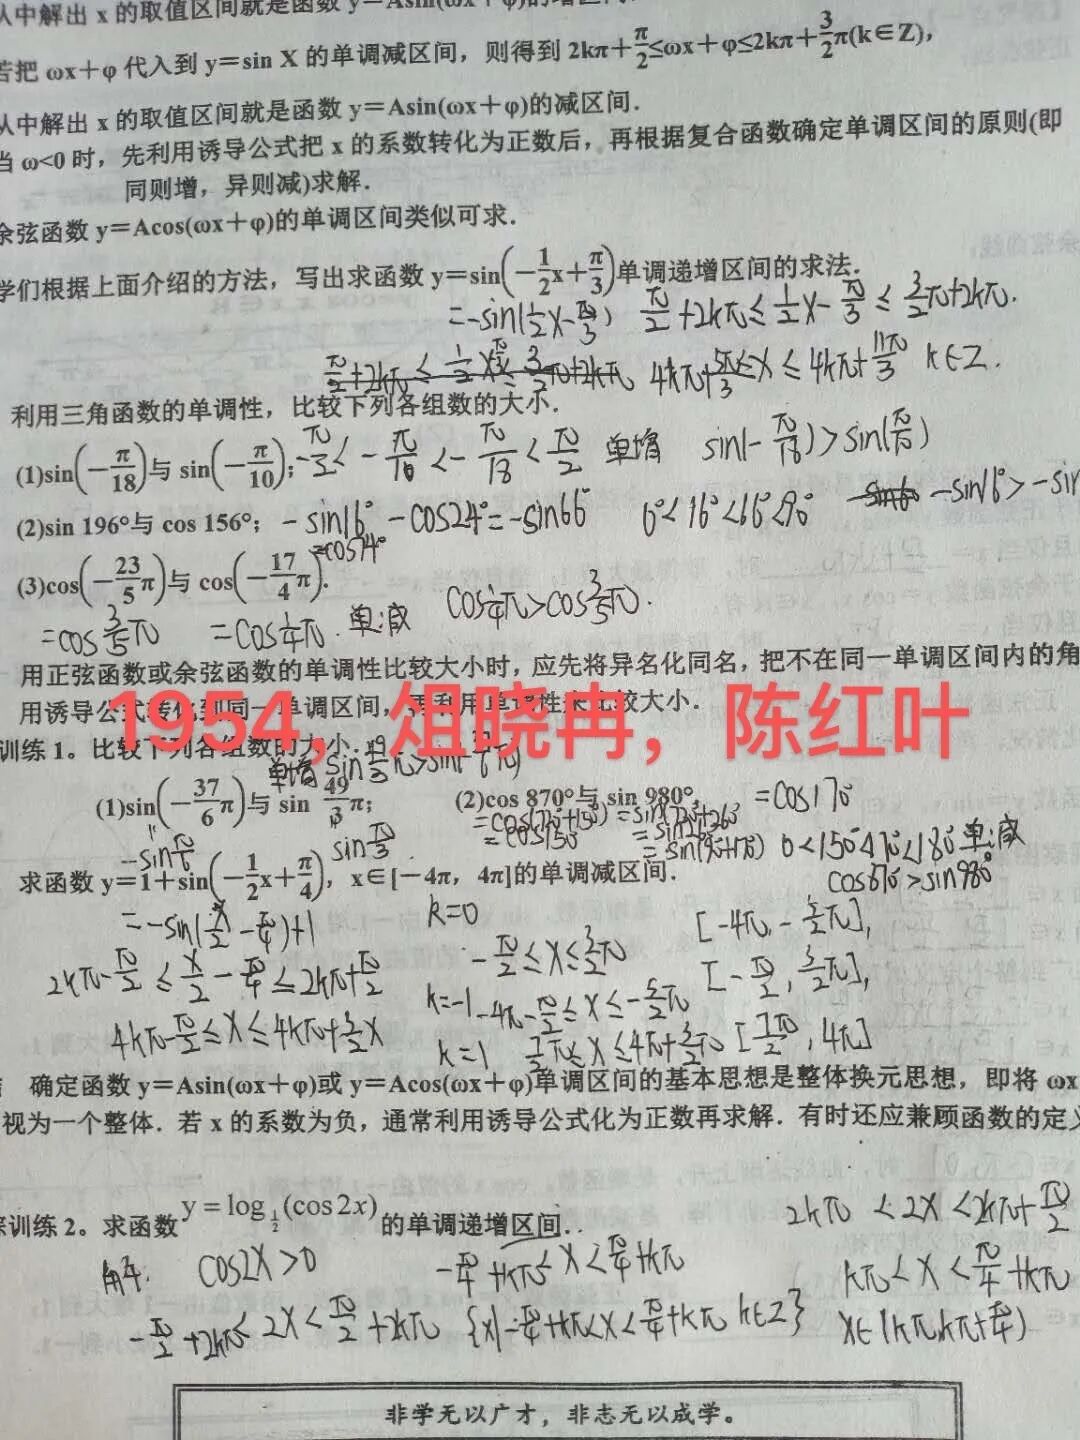 从中解出 x 的取值区间就是函数 y=Asin(ωx+φ)的增区间.
若把 ωx+φ 代入到 y=sin X 的单调减区间，则得到 2kπ+π/2≤ωx+φ≤2kπ+3/2π(k∈Z)，
从中解出 x 的取值区间就是函数 y=Asin(ωx+φ)的减区间.
当 ω<0 时，先利用诱导公式把 x 的系数转化为正数后，再根据复合函数确定单调区间的原则(即
同则增，异则减)求解.
余弦函数 y=Acos(ωx+φ)的单调区间类似可求.
学们根据上面介绍的方法，写出求函数 y=sin(-1/2x+π/3)单调递增区间的求法.
=-sin(1/2x-π/3) π/2+2kπ≤1/2x-π/3≤3/2π+2kπ.
4kπ+5π/3≤x≤4kπ+11π/3 k∈Z.
利用三角函数的单调性，比较下列各组数的大小.
(1)sin(-π/18)与 sin(-π/10)； -π/2<-π/10<-π/18<π/2 单增 sin(-π/18)>sin(π/10)
(2)sin 196°与 cos 156°； -sin16° -cos24°=-sin66° 0°<16°<66°<90° -sin16°>-sin
=cos74°
(3)cos(-23/5π)与 cos(-17/4π).
=cos3/5π =cos1/4π. 单减 cos1/4π>cos3/5π.
用正弦函数或余弦函数的单调性比较大小时，应先将异名化同名，把不在同一单调区间内的角
用诱导公式转化到同一单调区间，再利用单调性来比较大小.
1954，俎晓冉，陈红叶
训练 1。比较下列各组数的大小.
单增 sin49/3π>sin(-37/6π)
(1)sin(-37/6π)与 sin 49/3π； (2)cos 870°与 sin 980°. =cos170°
-sinπ/6 sinπ/3 =cos(720°+150°) =sin(720°+260°)
=cos150° =sin260°
=sin(90°+170°) 0<150°<170°<180° 单减
cos870°>sin980°
求函数 y=1+sin(-1/2x+π/4)，x∈[-4π，4π]的单调减区间.
=-sin(x/2-π/4)+1 k=0 [-4π,-5/2π],
2kπ-π/2≤x/2-π/4≤2kπ+π/2 -π/2≤x≤3/2π [-π/2,3/2π],
4kπ-π/2≤x≤4kπ+3/2x k=-1 -4π-π/2≤x≤-5/2π
k=1 7/2π≤x≤4π+3/2π [7π/2,4π]
确定函数 y=Asin(ωx+φ)或 y=Acos(ωx+φ)单调区间的基本思想是整体换元思想，即将 ωx
视为一个整体．若 x 的系数为负，通常利用诱导公式化为正数再求解．有时还应兼顾函数的定义
训练 2。求函数 y=log1/2(cos2x) 的单调递增区间. 2kπ<2x<2kπ+π/2
解. cos2x>0 -π/4+kπ<x<π/4+kπ kπ<x<π/4+kπ
-π/2+2kπ<2x<π/2+2kπ {x|-π/4+kπ<x<π/4+kπ k∈Z} x∈(kπ,kπ+π/4)
非学无以广才，非志无以成学。